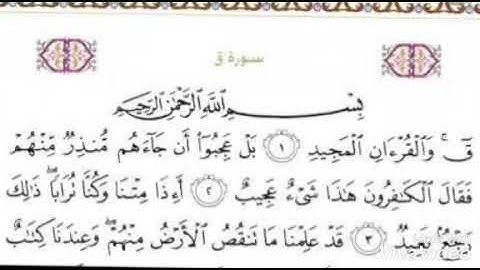 سورة ق
بِسْمِ اللَّهِ الرَّحْمَٰنِ الرَّحِيمِ
قٓ ۚ وَالْقُرْءَانِ الْمَجِيدِ ١ بَلْ عَجِبُوٓا۟ أَن جَآءَهُم مُّنذِرٌ مِّنْهُمْ
فَقَالَ الْكَٰفِرُونَ هَٰذَا شَىْءٌ عَجِيبٌ ٢ أَءِذَا مِتْنَا وَكُنَّا تُرَابًا ۖ ذَٰلِكَ
رَجْعٌۢ بَعِيدٌ ٣ قَدْ عَلِمْنَا مَا تَنقُصُ الْأَرْضُ مِنْهُمْ ۖ وَعِندَنَا كِتَٰبٌ